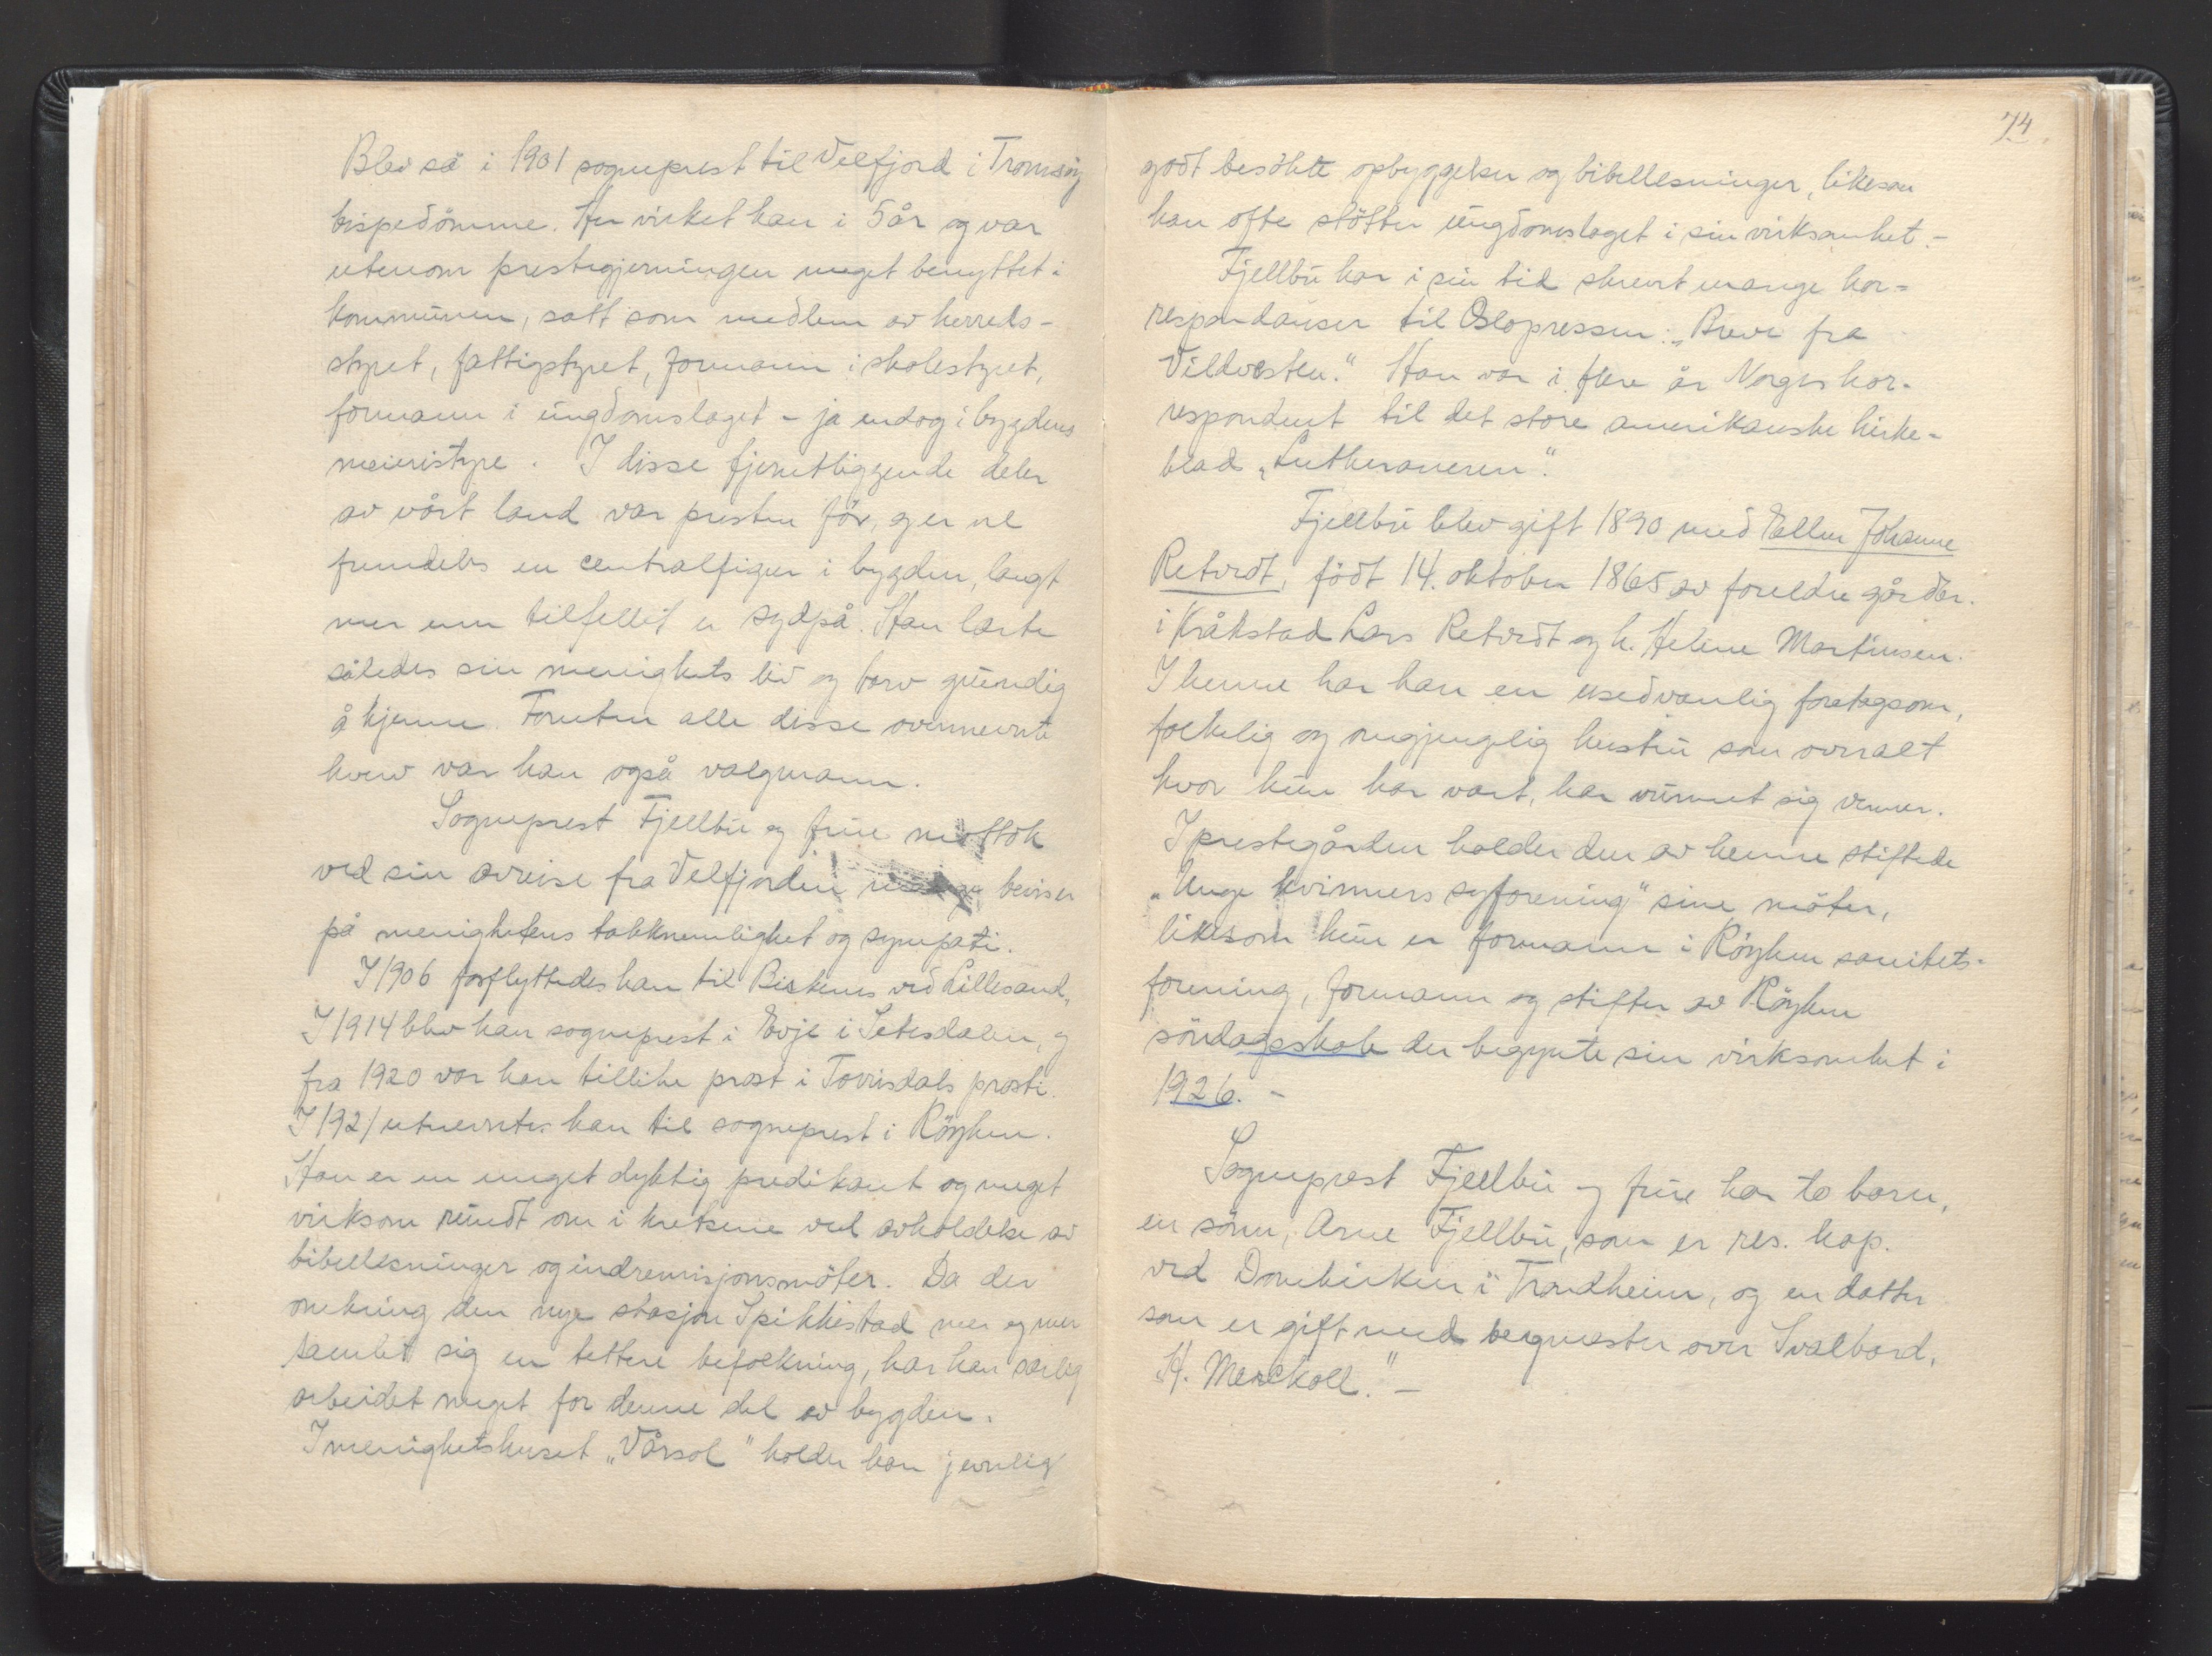 Blev så i 1901 sogneprest til Velfjord i Tromsøy
bispedömme. Her virket han i 5 år og var
utenom prestegjerningen meget benyttet i
kommunen, satt som medlem av herreds-
styret, fattigstyret, formann i skolestyret,
formann i ungdomslaget - ja endog i bygdens
meieristyre. I disse fjerntliggende deler
av vårt land var presten för, og er vel
fremdeles en centralfigur i bygden, langt
mer enn tilfellet er sydpå. Han lærte
således sin menighets liv og tarv grundig
å kjenne. Foruten alle disse ovennevnte
hverv var han også valgmann.
Sogneprest Fjellbu og frue mottok
ved sin avreise fra Velfjorden mange beviser
på menighetens takknemlighet og sympati.
I 1906 forflyttedes han til Birkenes ved Lillesand,
I 1914 blev han sogneprest i Evje i Setesdalen, og
fra 1920 var han tillike prost i Tovdals prosti.
I 1921 utnevntes han til sogneprest i Röyken.
Han er en meget dyktig predikant og meget
virksom rundt om i kretsene ved avholdelse av
bibellesninger og indremisjonsmöter. Da der
omkring den nye stasjon Spikkestad mer og mer
samlet sig en tettere befolkning, har han særlig
arbeidet meget for denne del av bygden.
I menighetshuset „Vårsol" holder han jevnlig
74.
godt besökte opbyggelser og bibellesninger, likesom
han ofte stötter ungdomslaget i sin virksomhet. -
Fjellbu har i sin tid skrevet mange kor-
respondanser til Oslopressen: „Breve fra
Vildvesten." Han var i flere år Norges kor-
respondent til det store amerikanske kirke-
blad „Lutheraneren".
Fjellbu blev gift 1890 med Ellen Johanne
Retvedt, födt 14. oktober 1865 av foreldre gårdbr.
i Kråkstad Lars Retvedt og h. Helene Martinsen.
I henne har han en usedvanlig foretagsom,
folkelig og omgjengelig hustru som overalt
hvor hun har vært, har vunnet sig venner.
I prestegården holder den av henne stiftede
„Unge kvinners syforening" sine möter,
likesom hun er formann i Röyken sanitets-
forening, formann og stifter av Röyken
söndagsskole der begynte sin virksomhet i
1926. -
Sogneprest Fjellbu og frue har to barn,
en sönn, Arne Fjellbu, som er res. kap.
ved Domkirken i Trondheim, og en datter
som er gift med bergmester over Svalbard,
H. Merckoll." -